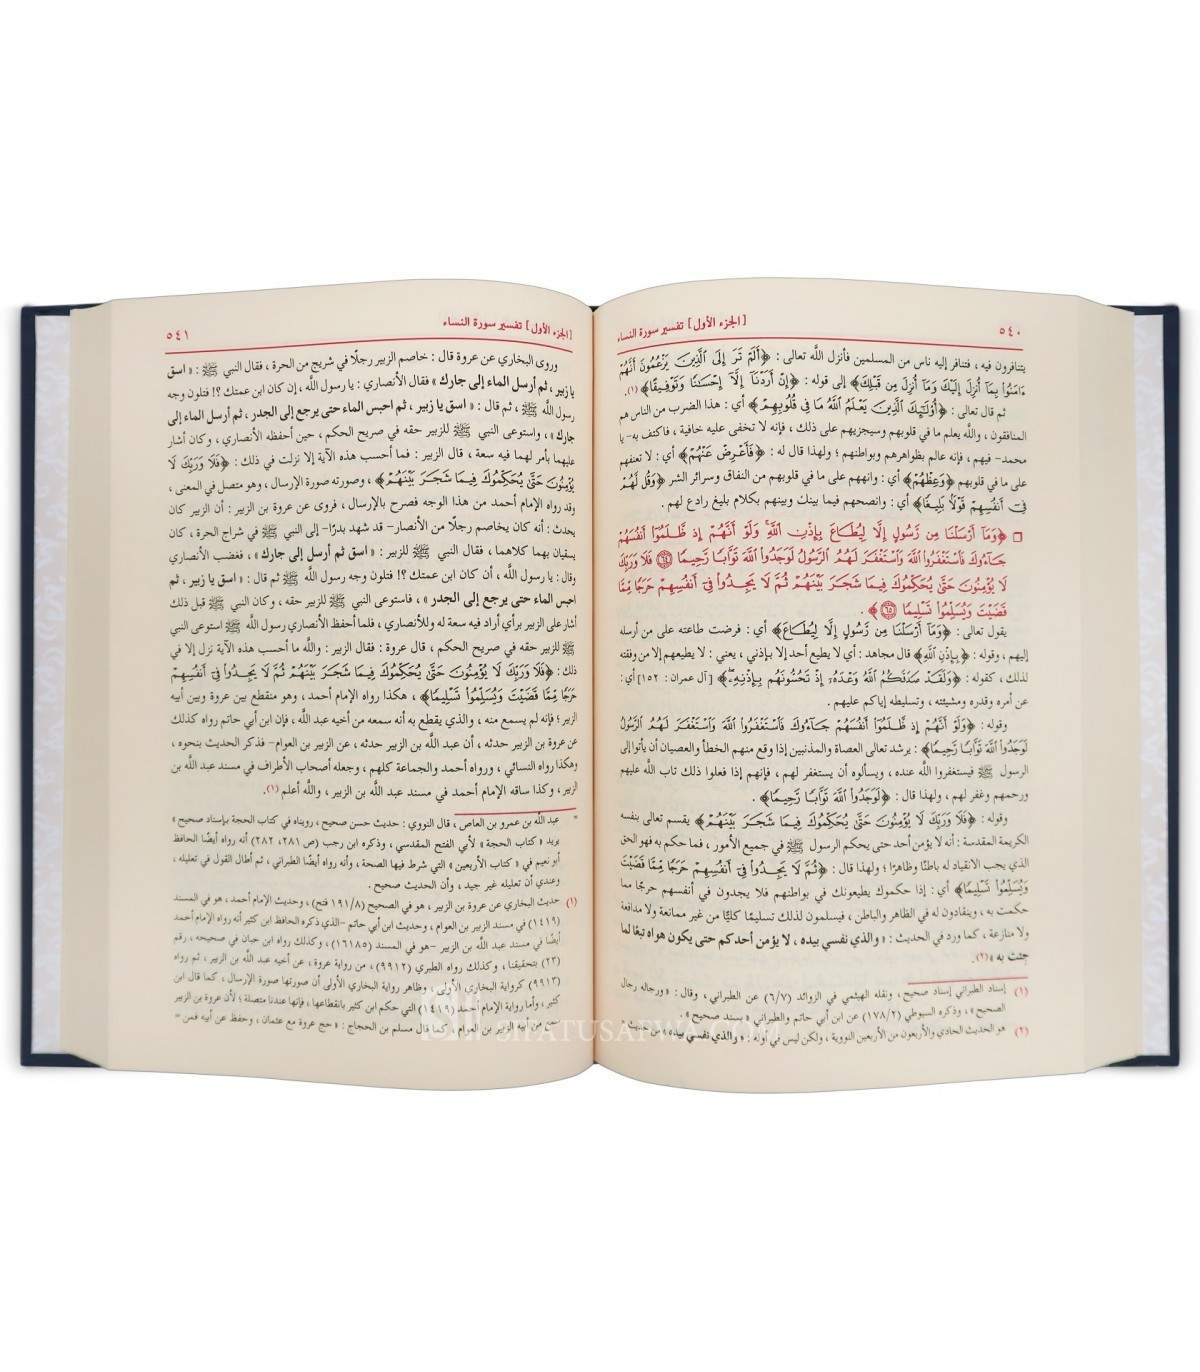 ٥٤٠
[الجزء الأول] تفسير سورة النساء
يتنافرون فيه ، فتنافر إليه ناس من المسلمين فأنزل اللَّه تعالى : ﴿أَلَمْ تَرَ إِلَى الَّذِينَ يَزْعُمُونَ أَنَّهُمْ
ءَامَنُوا بِمَا أُنزِلَ إِلَيْكَ وَمَا أُنزِلَ مِن قَبْلِكَ﴾ إلى قوله : ﴿إِنْ أَرَدْنَا إِلَّا إِحْسَانًا وَتَوْفِيقًا﴾ (١).
ثم قال تعالى : ﴿أُولَئِكَ الَّذِينَ يَعْلَمُ اللَّهُ مَا فِي قُلُوبِهِمْ﴾ أي : هذا الضرب من الناس هم
المنافقون ، واللَّه يعلم ما في قلوبهم وسيجزيهم على ذلك ، فإنه لا تخفى عليه خافية ، فاكتف به- يا
محمد- فيهم ، فإنه عالم بظواهرهم وبواطنهم ؛ ولهذا قال له : ﴿فَأَعْرِضْ عَنْهُمْ﴾ أي : لا تعنفهم
على ما في قلوبهم ﴿وَعِظْهُمْ﴾ أي : وانههم على ما في قلوبهم من النفاق وسرائر الشر ﴿وَقُل لَّهُمْ
فِي أَنفُسِهِمْ قَوْلًا بَلِيغًا﴾ أي : وانصحهم فيما بينك وبينهم بكلام بليغ رادع لهم .
□ ﴿وَمَا أَرْسَلْنَا مِن رَّسُولٍ إِلَّا لِيُطَاعَ بِإِذْنِ اللَّهِ وَلَوْ أَنَّهُمْ إِذ ظَّلَمُوا أَنفُسَهُمْ
جَاءُوكَ فَاسْتَغْفَرُوا اللَّهَ وَاسْتَغْفَرَ لَهُمُ الرَّسُولُ لَوَجَدُوا اللَّهَ تَوَّابًا رَّحِيمًا ٦٤ فَلَا وَرَبِّكَ
لَا يُؤْمِنُونَ حَتَّى يُحَكِّمُوكَ فِيمَا شَجَرَ بَيْنَهُمْ ثُمَّ لَا يَجِدُوا فِي أَنفُسِهِمْ حَرَجًا مِّمَّا
قَضَيْتَ وَيُسَلِّمُوا تَسْلِيمًا ٦٥﴾ .
يقول تعالى : ﴿وَمَا أَرْسَلْنَا مِن رَّسُولٍ إِلَّا لِيُطَاعَ﴾ أي : فرضت طاعته على من أرسله
إليهم ، وقوله : ﴿بِإِذْنِ اللَّهِ﴾ قال مجاهد : أي لا يطيع أحد إلا بإذني ، يعني : لا يطيعهم إلا من وفقته
لذلك ، كقوله : ﴿وَلَقَدْ صَدَقَكُمُ اللَّهُ وَعْدَهُ إِذْ تَحُسُّونَهُم بِإِذْنِهِ﴾ [آل عمران : ١٥٢] أي :
عن أمره وقدره ومشيئته ، وتسليطه إياكم عليهم .
وقوله : ﴿وَلَوْ أَنَّهُمْ إِذ ظَّلَمُوا أَنفُسَهُمْ جَاءُوكَ فَاسْتَغْفَرُوا اللَّهَ وَاسْتَغْفَرَ لَهُمُ الرَّسُولُ
لَوَجَدُوا اللَّهَ تَوَّابًا رَّحِيمًا﴾ : يرشد تعالى العصاة والمذنبين إذا وقع منهم الخطأ والعصيان أن يأتوا إلى
الرسول ﷺ فيستغفروا اللَّه عنده ، ويسألوه أن يستغفر لهم ، فإنهم إذا فعلوا ذلك تاب اللَّه عليهم
ورحمهم وغفر لهم ، ولهذا قال : ﴿لَوَجَدُوا اللَّهَ تَوَّابًا رَّحِيمًا﴾ .
وقوله : ﴿فَلَا وَرَبِّكَ لَا يُؤْمِنُونَ حَتَّى يُحَكِّمُوكَ فِيمَا شَجَرَ بَيْنَهُمْ﴾ يقسم تعالى بنفسه
الكريمة المقدسة : أنه لا يؤمن أحد حتى يحكم الرسول ﷺ في جميع الأمور ، فما حكم به فهو الحق
الذي يجب الانقياد له باطنًا وظاهرًا ؛ ولهذا قال : ﴿ثُمَّ لَا يَجِدُوا فِي أَنفُسِهِمْ حَرَجًا مِّمَّا قَضَيْتَ
وَيُسَلِّمُوا تَسْلِيمًا﴾ أي : إذا حكموك يطيعونك في بواطنهم فلا يجدون في أنفسهم حرجًا مما
حكمت به ، وينقادون له في الظاهر والباطن ، فيسلمون لذلك تسليمًا كليًّا من غير ممانعة ولا مدافعة
ولا منازعة ، كما ورد في الحديث : « والذي نفسي بيده ، لا يؤمن أحدكم حتى يكون هواه تبعًا لما
جئت به »(٢).
(١) إسناد الطبراني إسناد صحيح ، ونقله الهيثمي في الزوائد (٦/٧) عن الطبراني ، وقال : « ورجاله رجال
الصحيح » ، وذكره السيوطي (١٧٨/٢) عن ابن أبي حاتم والطبراني « بسند صحيح ».
(٢) هو الحديث الحادي والأربعون من الأربعين النووية ، ولكن ليس في أوله : « والذي نفسي بيده » من حديث =
[الجزء الأول] تفسير سورة النساء
٥٤١
وروى البخاري عن عروة قال : خاصم الزبير رجلًا في شريج من الحرة ، فقال النبي ﷺ : « اسق
يا زبير ، ثم أرسل الماء إلى جارك » فقال الأنصاري : يا رسول اللَّه ، إن كان ابن عمتك ؟! فتلون وجه
رسول اللَّه ﷺ ، ثم قال : « اسق يا زبير ، ثم احبس الماء حتى يرجع إلى الجدر ، ثم أرسل الماء إلى
جارك » ، واستوعى النبي ﷺ للزبير حقه في صريح الحكم ، حين أحفظه الأنصاري ، وكان أشار
عليهما بأمر لهما فيه سعة ، قال الزبير : فما أحسب هذه الآية إلا نزلت في ذلك : ﴿فَلَا وَرَبِّكَ لَا
يُؤْمِنُونَ حَتَّى يُحَكِّمُوكَ فِيمَا شَجَرَ بَيْنَهُمْ﴾ ، وصورته صورة الإرسال ، وهو متصل في المعنى ،
وقد رواه الإمام أحمد من هذا الوجه فصرح بالإرسال ، فروى عن عروة بن الزبير : أن الزبير كان
يحدث : أنه كان يخاصم رجلًا من الأنصار- قد شهد بدرًا- إلى النبي ﷺ في شراج الحرة ، كان
يسقيان بهما كلاهما ، فقال النبي ﷺ للزبير : « اسق ثم أرسل إلى جارك » ، فغضب الأنصاري
وقال : يا رسول اللَّه ، أن كان ابن عمتك ؟! فتلون وجه رسول اللَّه ﷺ ثم قال : « اسق يا زبير ، ثم
احبس الماء حتى يرجع إلى الجدر » ، فاستوعى النبي ﷺ للزبير حقه ، وكان النبي ﷺ قبل ذلك
أشار على الزبير برأي أراد فيه سعة له وللأنصاري ، فلما أحفظ الأنصاري رسول اللَّه ﷺ استوعى النبي
ﷺ للزبير حقه في صريح الحكم ، قال عروة : فقال الزبير : واللَّه ما أحسب هذه الآية نزل إلا في
ذلك : ﴿فَلَا وَرَبِّكَ لَا يُؤْمِنُونَ حَتَّى يُحَكِّمُوكَ فِيمَا شَجَرَ بَيْنَهُمْ ثُمَّ لَا يَجِدُوا فِي أَنفُسِهِمْ
حَرَجًا مِّمَّا قَضَيْتَ وَيُسَلِّمُوا تَسْلِيمًا﴾ ، هكذا رواه الإمام أحمد ، وهو منقطع بين عروة وبين أبيه
الزبير ؛ فإنه لم يسمع منه ، والذي يقطع به أنه سمعه من أخيه عبد اللَّه ، فإن ابن أبي حاتم رواه كذلك
عن عروة بن الزبير حدثه ، أن عبد اللَّه بن الزبير حدثه ، عن الزبير بن العوام- فذكر الحديث بنحوه ،
وهكذا رواه النسائي ، ورواه أحمد والجماعة كلهم ، وجعله أصحاب الأطراف في مسند عبد اللَّه بن
الزبير ، وكذا ساقه الإمام أحمد في مسند عبد اللَّه بن الزبير ، واللَّه أعلم .(١)
= عبد اللَّه بن عمرو بن العاص ، قال النووي : حديث حسن صحيح ، رويناه في كتاب الحجة بإسناد صحيح »
يريد « كتاب الحجة » لأبي الفتح المقدسي ، وذكره ابن رجب (ص ٢٨١، ٢٨٢) أنه رواه أيضًا الحافظ
أبو نعيم في « كتاب الأربعين » التي شرط فيها الصحة ، وأنه رواه أيضًا الطبراني ، ثم أطال القول في تعليله ،
وعندي أن تعليله غير جيد ، وأن الحديث صحيح .
(١) حديث البخاري عن عروة بن الزبير ، هو في الصحيح (١٩١/٨ فتح)، وحديث الإمام أحمد ، هو في المسند
(١٤١٩) في مسند الزبير بن العوام ، وحديث ابن أبي حاتم -الذي ذكره الحافظ ابن كثير أنه رواه الإمام أحمد
أيضًا في مسند عبد اللَّه بن الزبير -هو في المسند (١٦١٨٥) ، وكذلك رواه ابن حبان في صحيحه ، رقم
(٢٣) بتحقيقنا ، وكذلك رواه الطبري (٩٩١٢) ، من رواية عروة ، عن أخيه عبد اللَّه بن الزبير ، ثم رواه
(٩٩١٣) كرواية البخاري الأولى ، وظاهر رواية البخاري الأولى أن صورتها صورة الإرسال ، كما قال ابن
كثير ، وأما رواية الإمام أحمد (١٤١٩) التي حكم ابن كثير بانقطاعها ، فإنها عندنا متصلة ؛ لأن عروة بن الزبير
من أبيه الزبير بن العوام ، كما قال مسلم بن الحجاج : « حج عروة مع عثمان ، وحفظ عن أبيه فمن =
SIFATUSAFWA.COM